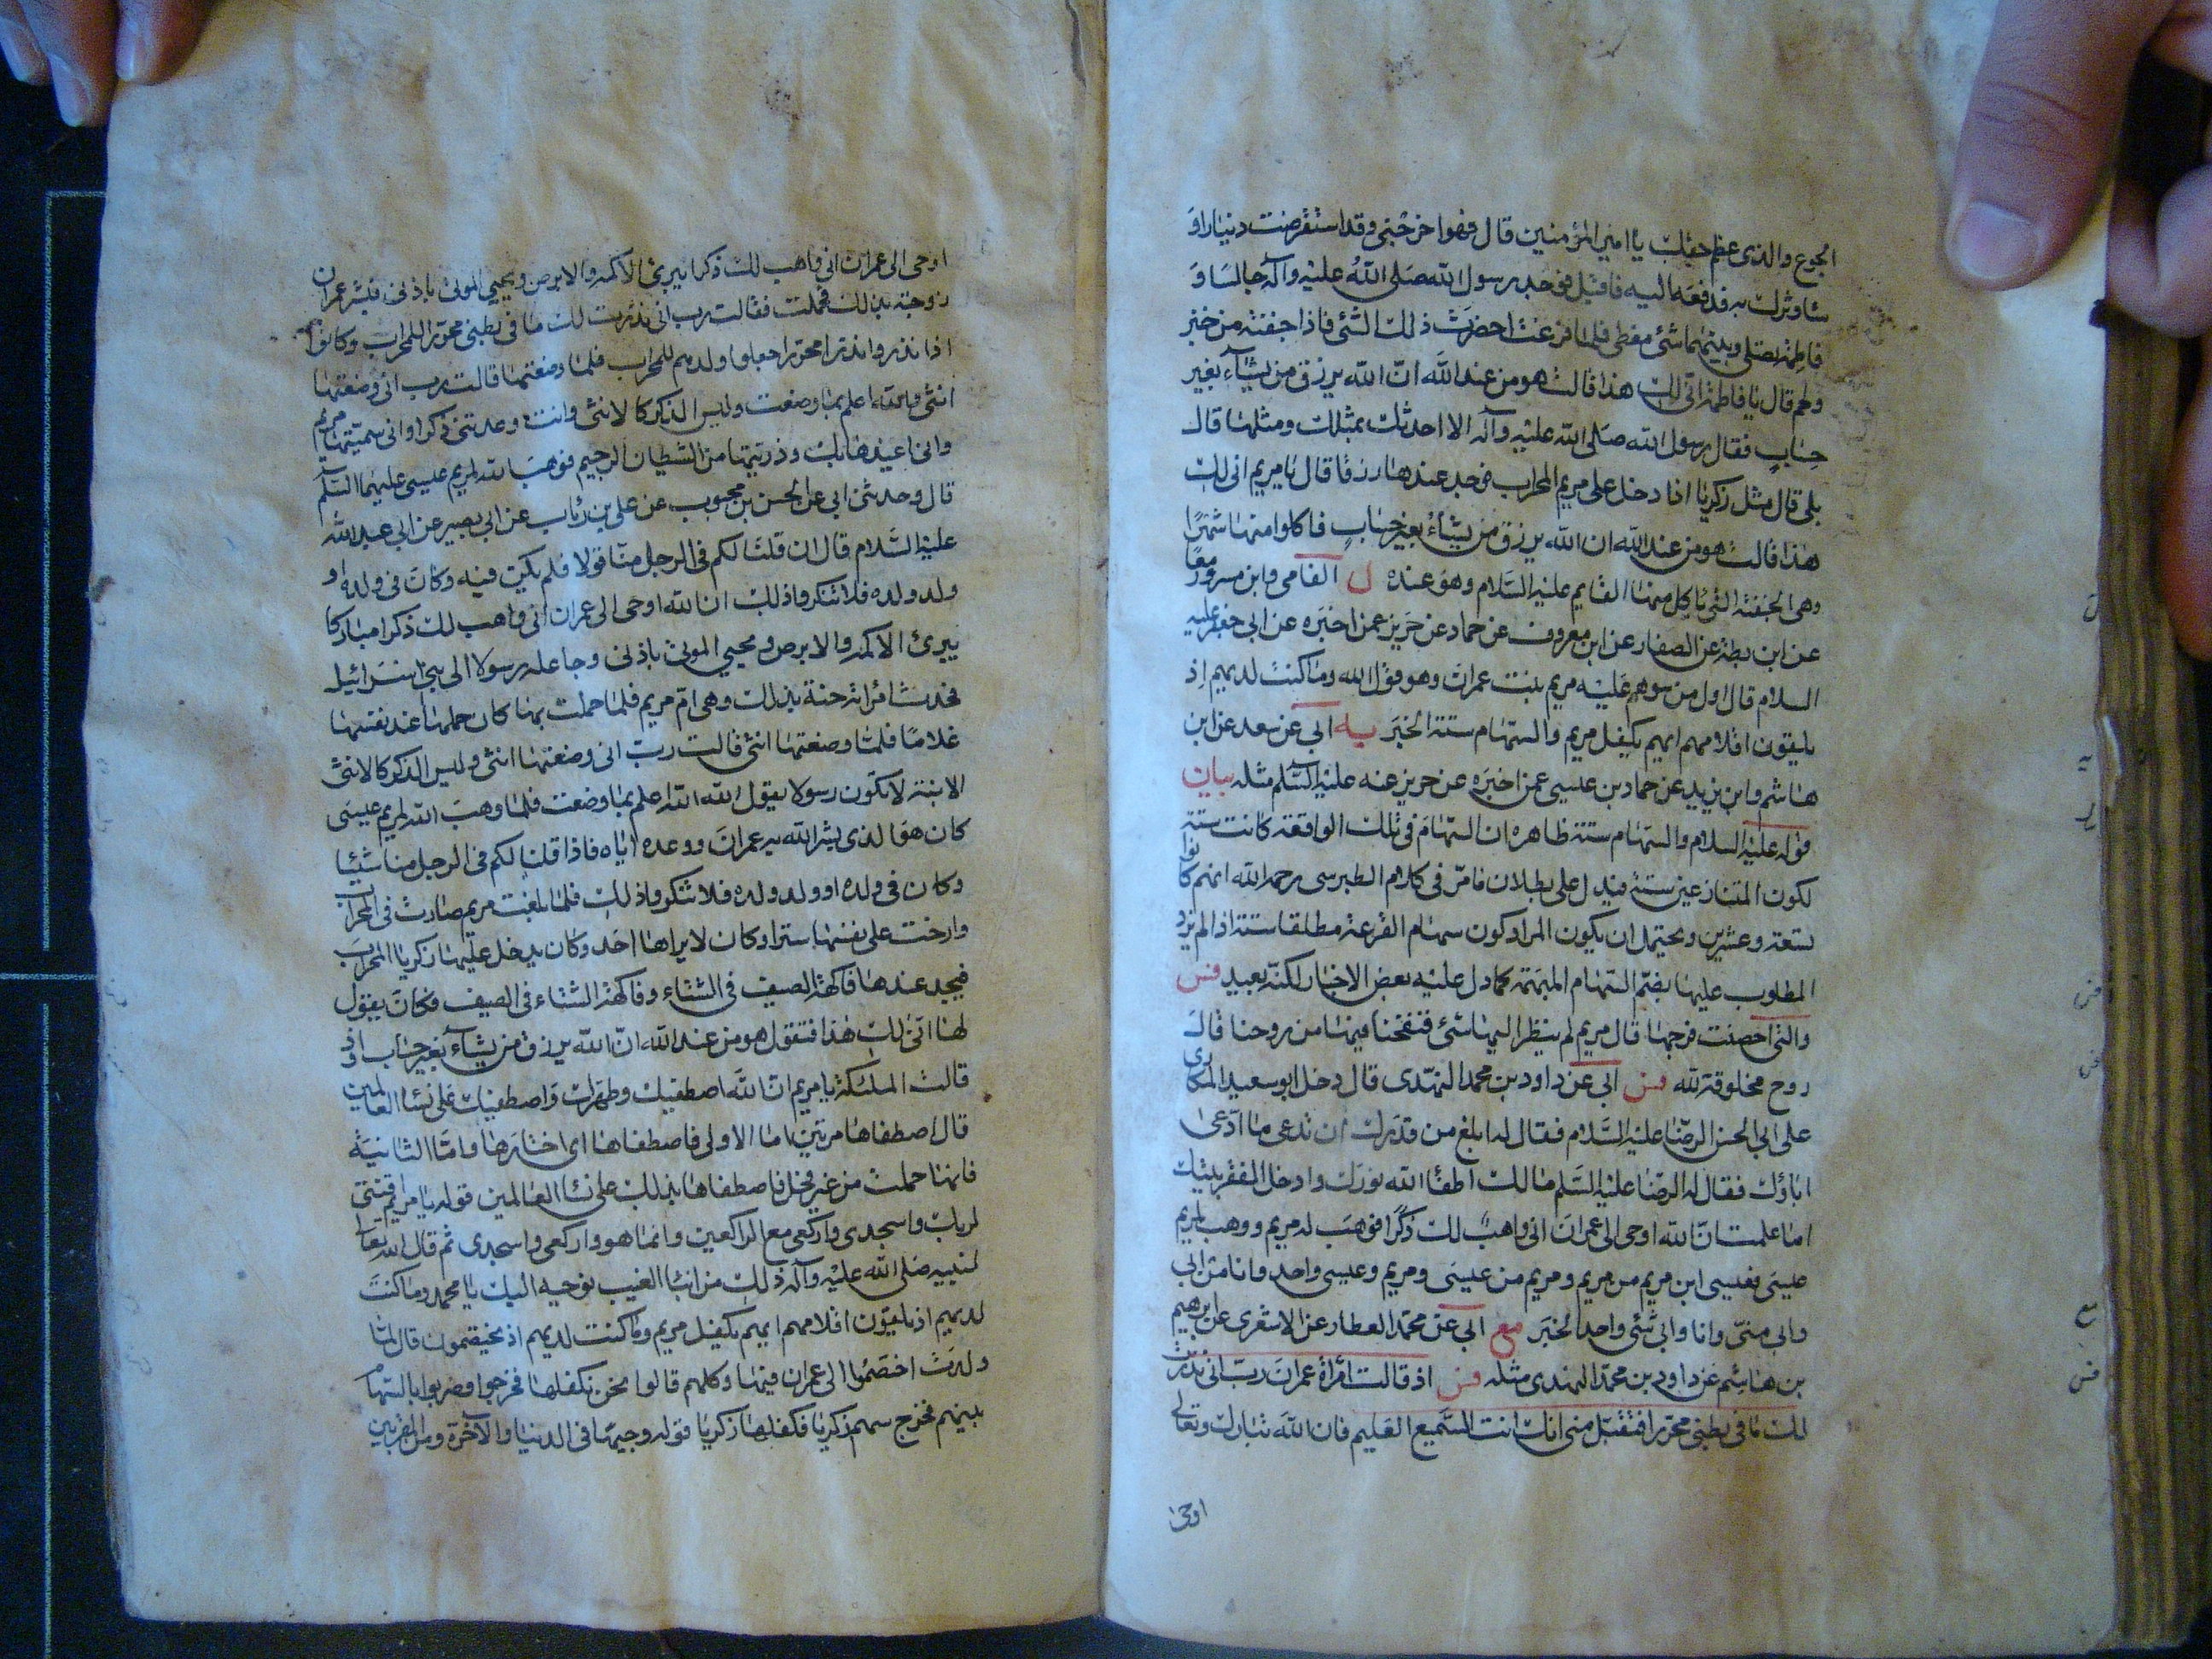 الجوع والذى عظم حقك يا امير المؤمنين قال فهوا خرجنى وقد استقرضت دينارا و
ساوثرك به فدفعه اليه فاقبل فوجد رسول الله صلى الله عليه وآله جالسا و
فاطمة تصلى وبينهما شئ مغطى فلما فرغت احضرت ذلك الشئ فاذا جفنة من خبز
ولحم قال يا فاطمة انى لك هذا قالت هو من عند الله ان الله يرزق من يشاء بغير
حساب فقال رسول الله صلى الله عليه وآله الا احدثك بمثلك ومثلها قال
بلى قال مثل زكريا اذا دخل على مريم المحراب فوجد عندها رزقا قال يا مريم انى لك
هذا قالت هو من عند الله ان الله يرزق من يشاء بغير حساب فاكلوا منها شهرا
وهى الجفنة التى ياكل منها القايم عليه السلام وهو عنده ل الفامى وابن مسرور معا
عن ابن بطة عن الصفار عن ابن معروف عن حماد عن حريز عمن اخبره عن ابى جعفر عليه
السلام قال اول من سوهم عليه مريم بنت عمران وهو قول الله وما كنت لديهم اذ
يلقون اقلامهم ايهم يكفل مريم والسهام ستة الخبر يه ابى عن سعد عن ابن
هاشم وابن يزيد عن حماد بن عيسى عمن اخبره عن حريز عنه عليه السلم مثله بيان
قوله عليه السلام والسهام ستة ظاهره ان السهام فى تلك الواقعة كانت ستة
لكون المتنازعين ستة فيدل على بطلان ما مر فى كلام الطبرسى رحمه الله انهم كانوا
تسعة وعشرين ويحتمل ان يكون المراد كون سهام القرعة مطلقا ستة اذا لم يزد
المطلوب عليها بضم السهام المبهمة كما دل عليه بعض الاخبار لكنه بعيد فس
والتى احصنت فرجها قال مريم لم ينظر اليها شئ فنفخنا فيها من روحنا قال
روح مخلوقة لله فس ابى عن داود بن محمد النهدى قال دخل ابو سعيد المكارى
على ابى الحسن الرضا عليه السلام فقال له ابلغ من قدرك ان تدعى ما ادعى
اباؤك فقال له الرضا عليه السلم ما لك اطفأ الله نورك وادخل الفقر بيتك
اما علمت ان الله اوحى الى عمران انى واهب لك ذكرا فوهب له مريم ووهب لمريم
عيسى فعيسى ابن مريم من مريم ومريم من عيسى ومريم وعيسى واحد وانا من ابى
وابى منى وانا وابى شئى واحد الخبر مع ابى عن محمد العطار عن الاشعرى عن ابرهيم
بن هاشم عن داود بن محمد النهدى مثله فس اذ قالت امرأة عمران رب انى نذرت
لك ما فى بطنى محررا فتقبل منى انك انت السميع العليم فان الله تبارك وتعالى
اوحى
اوحى الى عمران انى واهب لك ذكرا يبرئ الاكمه والابرص ويحيى الموتى باذنى فبشر عمران
زوجته بذلك فحملت فقالت رب انى نذرت لك ما فى بطنى محررا للمحراب وكانوا
اذا نذروا نذرا محررا جعلوا ولدهم للمحراب فلما وضعتها قالت رب انى وضعتها
انثى والله اعلم بما وضعت وليس الذكر كالانثى وانت وعدتنى ذكرا وانى سميتها مريم
وانى اعيذها بك وذريتها من الشيطان الرجيم فوهب الله لمريم عيسى عليهما السلم
قال وحدثنى ابى عن الحسن بن محبوب عن على بن رئاب عن ابى بصير عن ابى عبد الله
عليه السلام قال ان قلنا لكم فى الرجل منا قولا فلم يكن فيه وكان فى ولده او
ولد ولده فلا تنكروا ذلك ان الله اوحى الى عمران انى واهب لك ذكرا مباركا
يبرئ الاكمه والابرص ويحيى الموتى باذنى وجاعله رسولا الى بنى اسرائيل
فحدث امرأته حنة بذلك وهى ام مريم فلما حملت بها كان حملها عند نفسها
غلاما فلما وضعتها انثى قالت رب انى وضعتها انثى وليس الذكر كالانثى
الابنة لا تكون رسولا يقول الله الله اعلم بما وضعت فلما وهب الله لمريم عيسى
كان هو الذى بشر الله به عمران ووعده اياه فاذا قلنا لكم فى الرجل منا شيئا
وكان فى ولده او ولد ولده فلا تنكروا ذلك فلما بلغت مريم صارت فى المحراب
وارخت على نفسها سترا وكان لا يراها احد وكان يدخل عليها زكريا المحراب
فيجد عندها فاكهة الصيف فى الشتاء وفاكهة الشتاء فى الصيف فكان يقول
لها انى لك هذا فتقول هو من عند الله ان الله يرزق من يشاء بغير حساب واذ
قالت الملئكة يا مريم ان الله اصطفيك وطهرك واصطفيك على نساء العالمين
قال اصطفاها مرتين اما الاولى فاصطفاها اى اختارها واما الثانية
فانها حملت من غير فحل فاصطفاها بذلك على نساء العالمين قوله يا مريم اقنتى
لربك واسجدى واركعى مع الراكعين وانما هو واركعى واسجدى ثم قال الله تعالى
لنبيه صلى الله عليه وآله ذلك من انباء الغيب نوحيه اليك يا محمد وما كنت
لديهم اذ يلقون اقلامهم ايهم يكفل مريم وما كنت لديهم اذ يختصمون قال لما
ولدت اختصموا الى عمران فيها وكلهم قالوا نحن نكفلها فخرجوا وضربوا بالسهام
بينهم فخرج سهم زكريا فكفلها زكريا قوله وجيها فى الدنيا والآخرة ومن المقربين